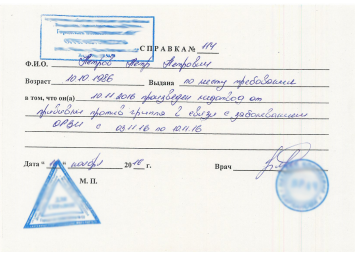 СПРАВКА № 114
Ф.И.О. Петров Петр Петрович
Возраст 10.10.1986 Выдана по месту требования
в том, что он(а) 10.11.2016 произведен медотвод от
прививки против гриппа в связи с заболеванием
ОРВИ с 03.11.16 по 10.11.16
Дата " " ноября 2016 г. Врач
М. П.